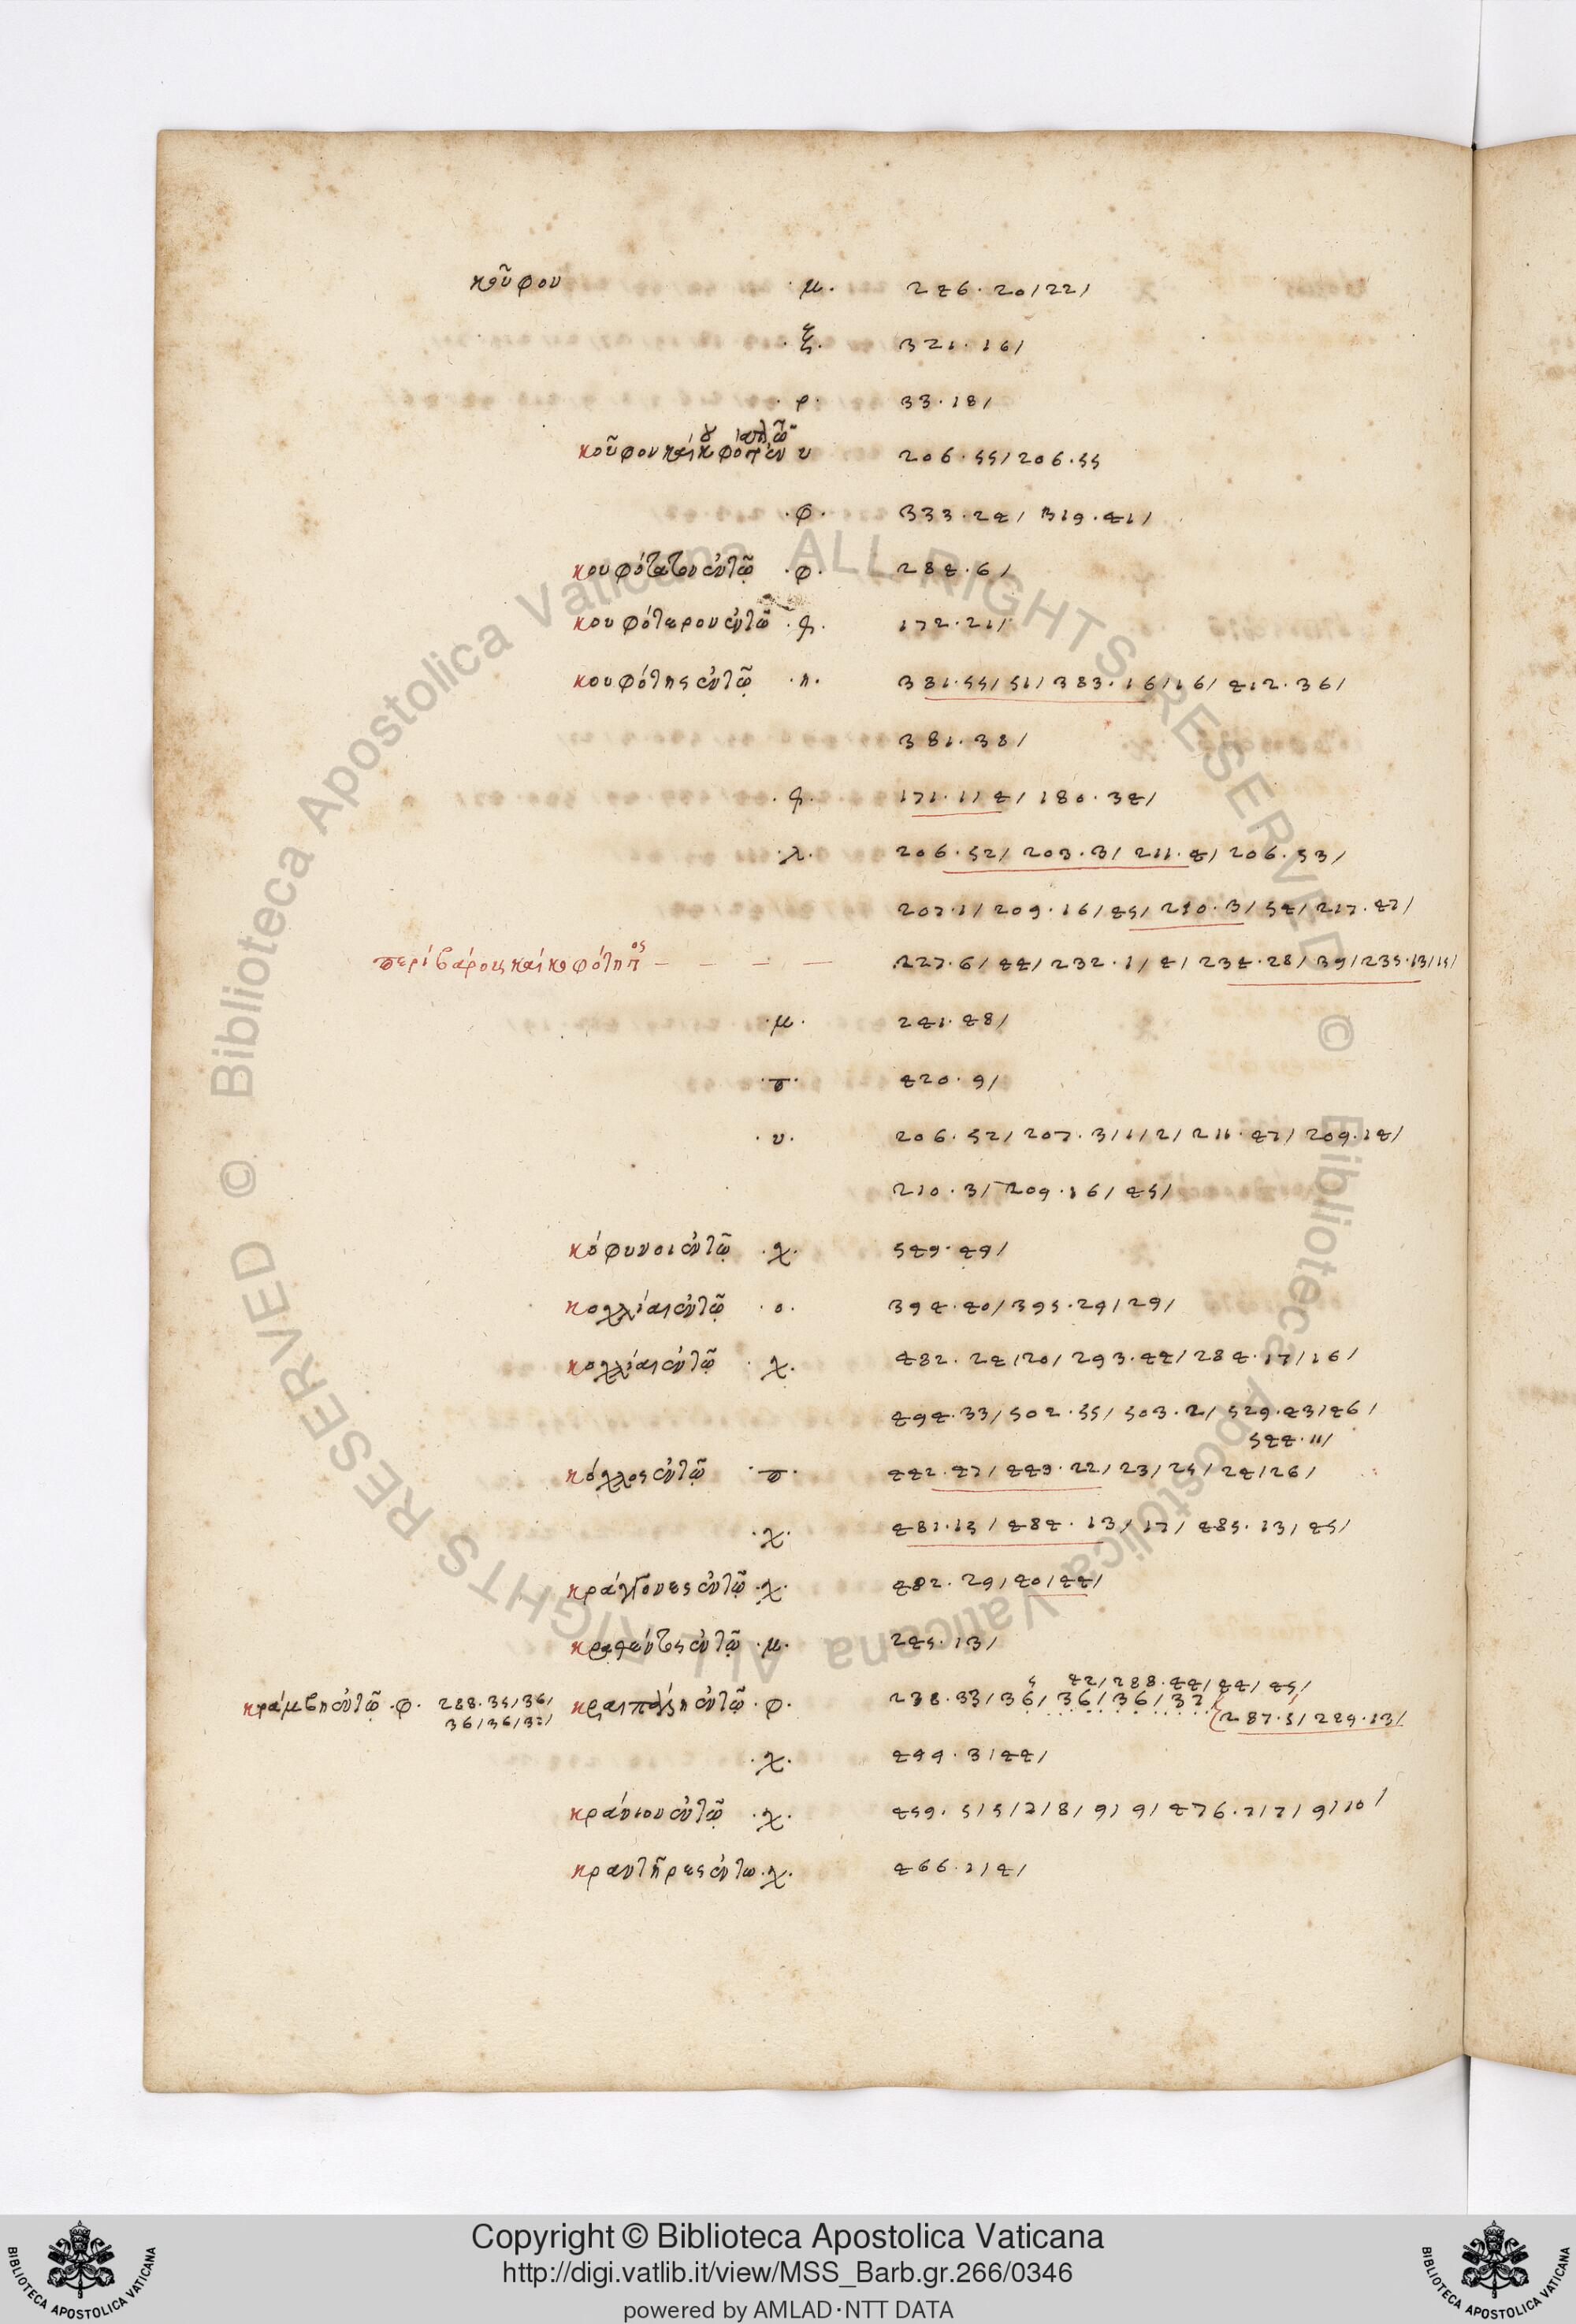 κοῦφον ·μ· 246·20/22/
·ξ· 321·16/
·ρ· 33·18/
κοῦφον καὶ υ 206·55/206·55
·φ· 333·24/ 319·41/
κουφότατον ἐν τῶ ·φ· 284·6/
κουφότερον ἐν τῶ 172·21/
κουφότης ἐν τῶ ·η· 381·55/51/383·16/16/412·36/
381·38/
171·11/4/180·34/
·λ· 206·52/203·3/211·4/206·53/
207·1/209·16/45/210·3/54/217·47/
περὶ βάρους καὶ κουφότητος 227·6/44/232·1/4/234·28/39/235·13/15/
·μ· 241·48/
·π· 420·9/
·υ· 206·52/207·3/1/2/211·47/209·14/
210·3/209·16/45/
κόφυνοι ἐν τῶ ·χ· 549·49/
κοχλίαι ἐν τῶ ·ο· 394·40/395·29/29/
κοχλίαι ἐν τῶ ·χ· 482·24/20/293·44/284·17/16/
494·33/502·55/503·2/529·43/46/
544·11/
κόχλος ἐν τῶ ·π· 442·47/443·22/23/25/24/26/
·χ· 481·15/484·13/17/485·13/45/
κράγγονες ἐν τῶ ·χ· 482·29/40/44/
ἐν τῶ ·μ· 245·13/
42/288·44/44/45/
κράμβη ἐν τῶ ·φ· 288·35/36/ κραιπάλη ἐν τῶ ·φ· 238·33/36/36/36/37
36/36/37/ 287·5/229·13/
·χ· 499·3/44/
κράνιον ἐν τῶ ·χ· 459·5/5/7/8/9/9/476·7/7/9/10/
κραντῆρες ἐν τω ·χ· 466·1/4/
Copyright © Biblioteca Apostolica Vaticana
http://digi.vatlib.it/view/MSS_Barb.gr.266/0346
powered by AMLAD·NTT DATA
BIBLIOTECA APOSTOLICA VATICANA
BIBLIOTECA APOSTOLICA VATICANA
© Biblioteca Apostolica Vaticana ALL RIGHTS RESERVED
© Biblioteca Apostolica Vaticana ALL RIGHTS RESERVED